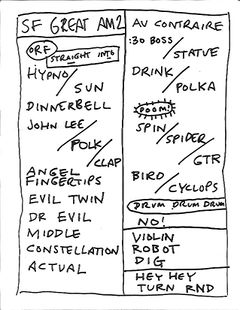 SF GREAT AM2
ORF
STRAIGHT INTO
HYPNO/
SUN
DINNERBELL
JOHN LEE/
POLK/
CLAP
ANGEL
FINGERTIPS
EVIL TWIN
DR EVIL
MIDDLE
CONSTELLATION
ACTUAL
AU CONTRAIRE
:30 BOSS/
STATUE
DRINK/
POLKA
DOOM!
SPIN/
SPIDER/
GTR
BIRD/
CYCLOPS
DRUM DRUM DRUM
NO!
VIOLIN
ROBOT
DIG
HEY HEY
TURN RND